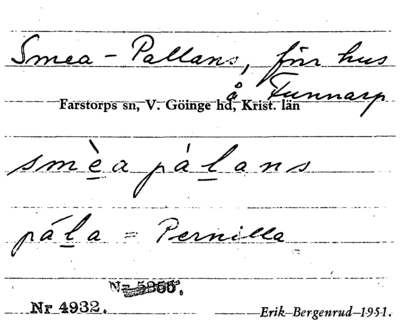 Smea-Pallans, förr hus
å Funnarp
Farstorps sn, V. Göinge hd, Krist. län
smèa pálans
pála = Pernilla
Nr 4932.
Erik Bergenrud 1951.